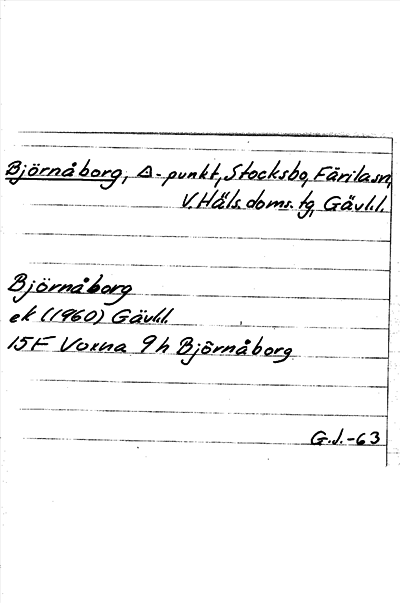 Björnåborg, Δ-punkt, Stocksbo, Färila sn,
V. Häls. doms. tg, Gävl.l.
Björnåborg
ek (1960) Gävl.l.
15F Voxna 9h Björnåborg
G.J.-63